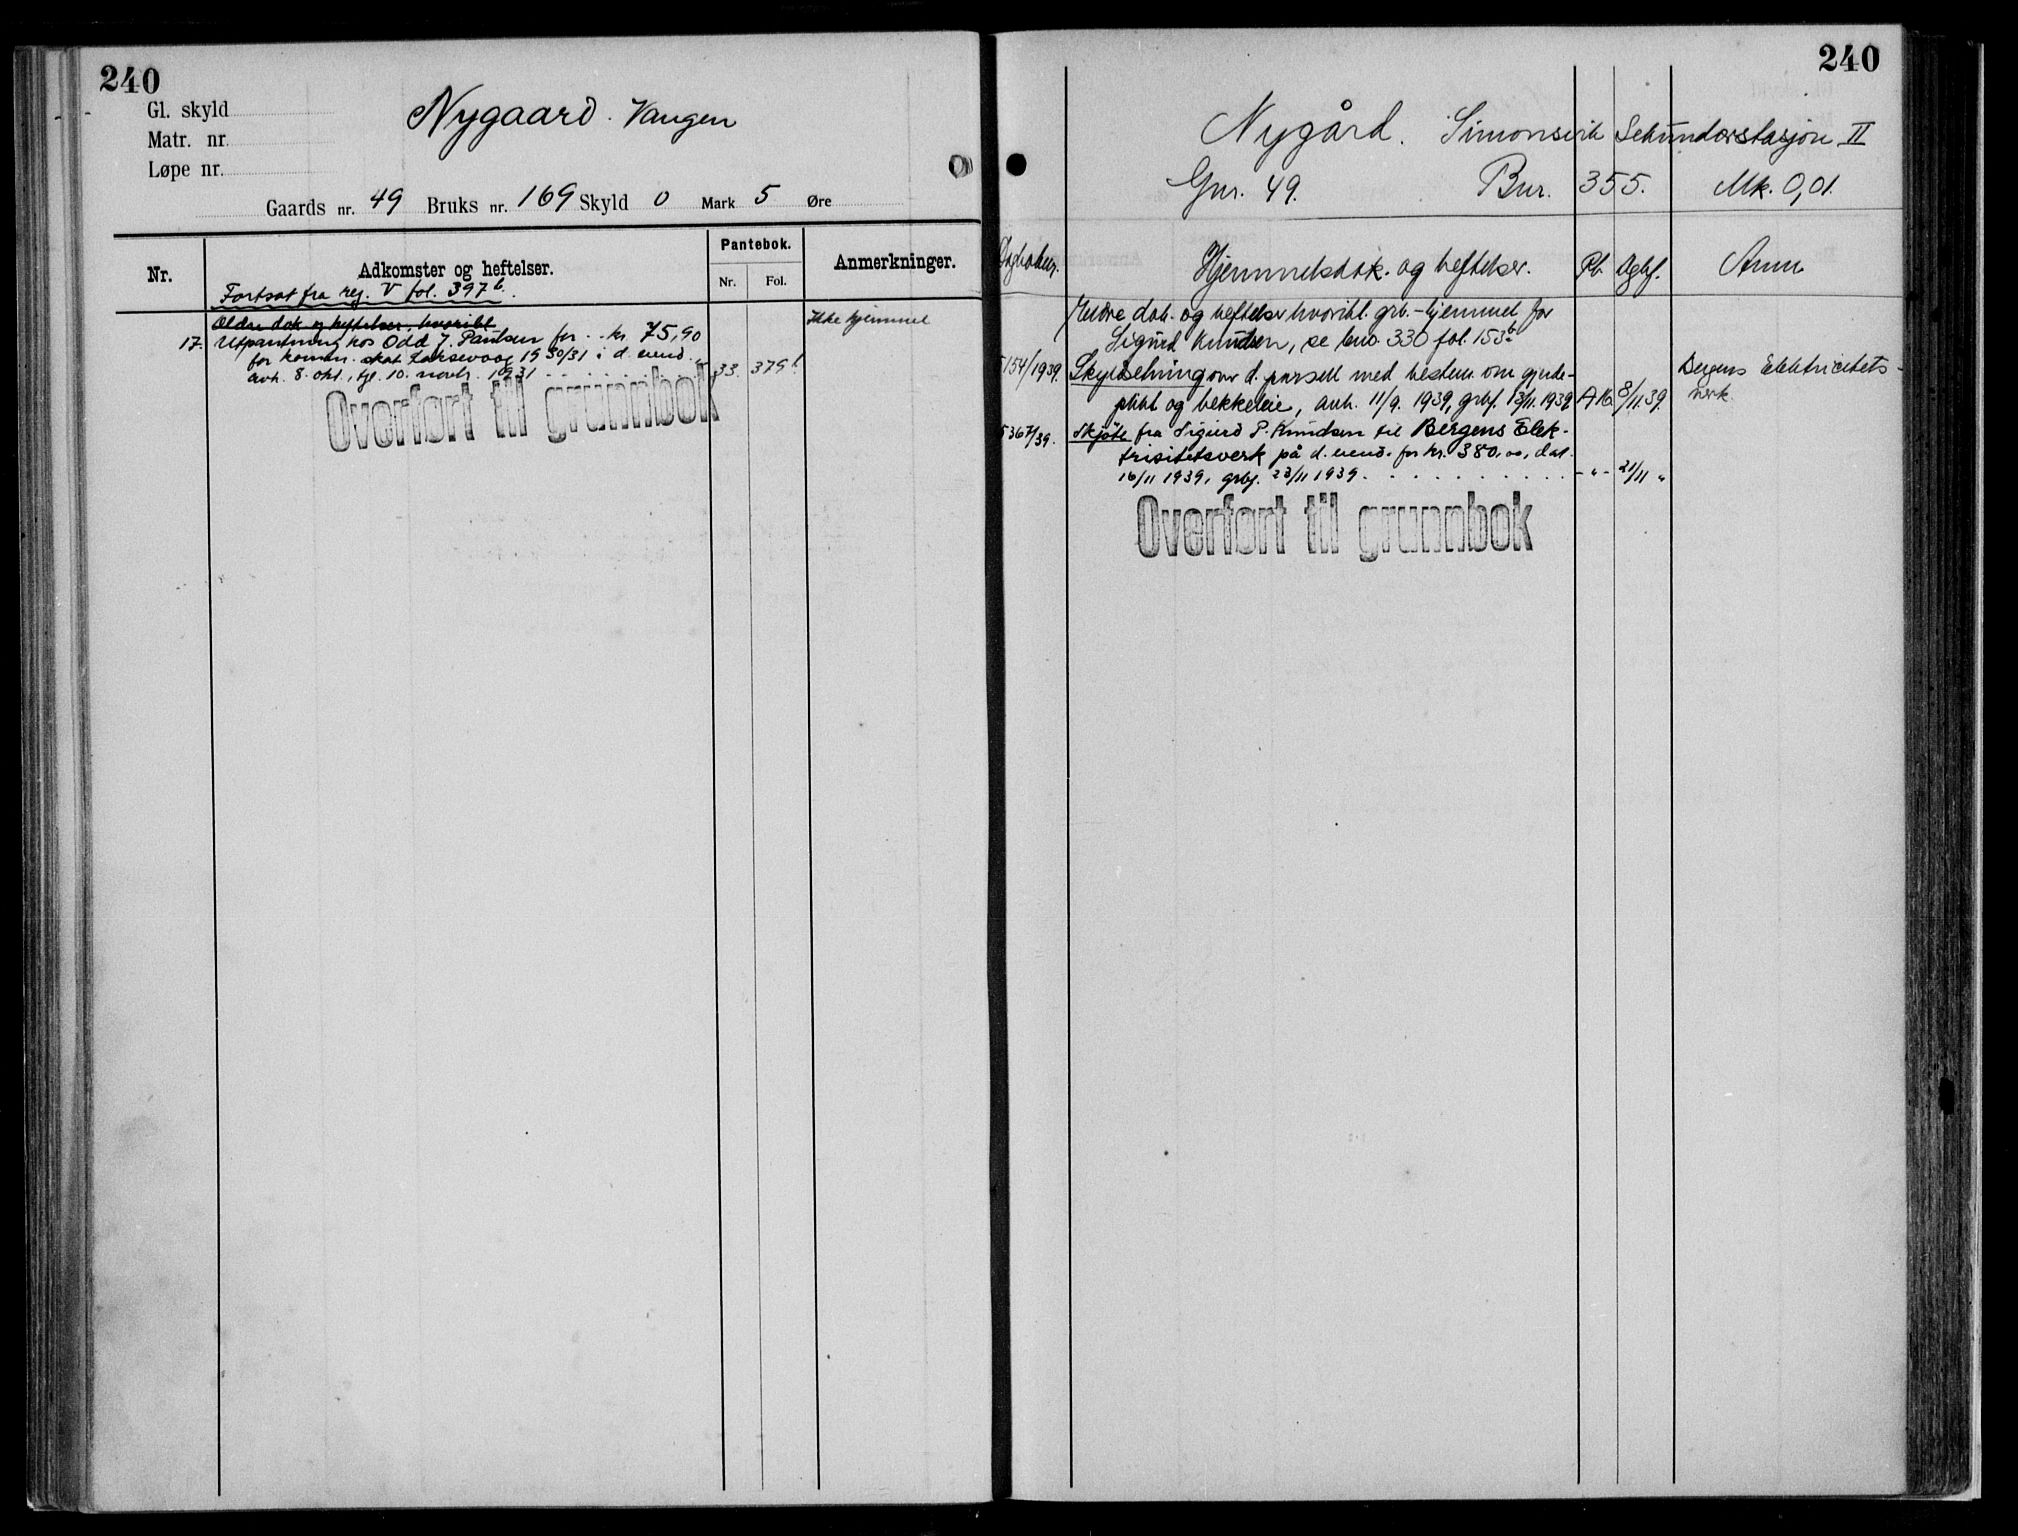 240
Gl. skyld
Matr. nr.
Løpe nr.
Nygaard. Vangen
Gaards nr. 49 Bruks nr. 169 Skyld 0 Mark 5 Øre
Nr.
Adkomster og heftelser.
Pantebok.
Nr. Fol.
Anmerkninger.
Fortsat fra reg. V fol. 397b.
Ældre dok og heftelser, hvoribl.
Ikke hjemmel
17. Utpantning hos Odd J. Paulsen for .. kr. 75,90
for komm. skat Laksevaag 1930/31 i d. eiend.
avh. 8. okt., tgl. 10. novbr. 1931 33. 379b.
Overført til grunnbok
240
Nygård. Simonsvik Sekundærstasjon II
Gnr. 49. Bnr. 355. Mk. 0,01.
Dagboknr. Hjemmelsdok. og heftelser. Pb. Dgbf. Anm.
Eldre dok. og heftelser hvoribl. grb.-hjemmel for
Sigurd Knudsen, se bno. 330 fol. 153b.
5154/1939. Skyldseling over d. parsell med bestem. om gjerde-
plikt og bekkeleie, avh. 11/9. 1939, grbf. 13/11. 1939 A 16. 8/11.39.
Bergens Elektricitets-
verk.
5367/39. Skjøte fra Sigurd P. Knudsen til Bergens Elek-
trisitetsverk på d. eiend. for kr. 380.00, dat.
16/11 1939, grbf. 23/11 1939. - " - 21/11 "
Overført til grunnbok